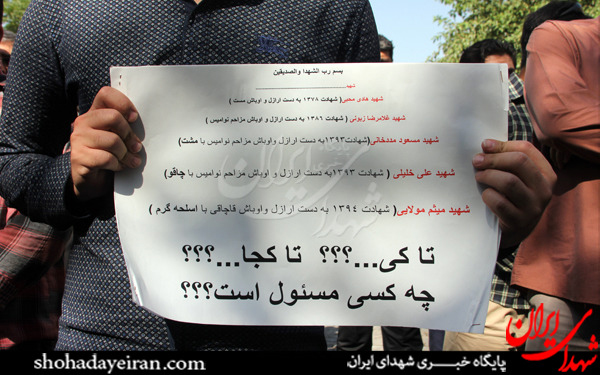 بسم رب الشهدا والصدیقین
شهید
شهید هادی محبی( شهادت ۱۳۷۸ به دست ارازل و اوباش مست )
شهید غلامرضا زبونی ( شهادت ۱۳۸۱ به دست ارازل و اوباش مزاحم نوامیس )
شهید مسعود مددخانی(شهادت۱۳۹۳به دست ارازل واوباش مزاحم نوامیس با مشت)
شهید علی خلیلی ( شهادت ۱۳۹۳به دست ارازل و اوباش مزاحم نوامیس با چاقو)
شهید میثم مولایی( شهادت ۱۳۹۴ به دست ارازل واوباش قاچاقی با اسلحه گرم )
تا کی...؟؟؟ تا کجا...؟؟؟
چه کسی مسئول است؟؟؟
شهدای ایران
شهدای ایران
پایگاه خبری شهدای ایران
shohadayeiran.com